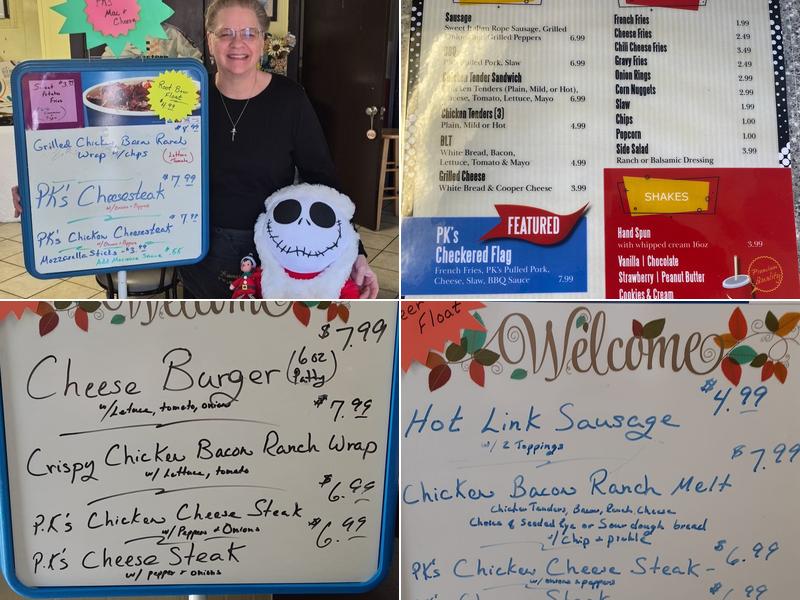 PK's
Mac &
Cheese
Sweet $3.
Potatoe
Fries
Root Beer
Float
$4.99
Grilled Chicken, Bacon Ranch
Wrap w/chps
(Lettuce
Tomato)
$7.99
PK's Cheesesteak
w/Onions + Peppers
$7.
PK's Chicken Cheesesteak
w/Onions + Peppers
Mozzarella Sticks - $3.99
Add Marinara Sauce $.55
Sausage
Sweet Italian Rope Sausage, Grilled
Onions and Grilled Peppers 6.99
Pulled Pork, Slaw 6.99
Chicken Tender Sandwich
Chicken Tenders (Plain, Mild, or Hot),
Cheese, Tomato, Lettuce, Mayo 6.99
Chicken Tenders (3)
Plain, Mild or Hot 4.99
BLT
White Bread, Bacon,
Lettuce, Tomato & Mayo 4.99
Grilled Cheese
White Bread & Cooper Cheese 3.99
FEATURED
PK's
Checkered Flag
French Fries, PK's Pulled Pork,
Cheese, Slaw, BBQ Sauce 7.99
French Fries 1.99
Cheese Fries 2.49
Chili Cheese Fries 3.49
Gravy Fries 2.49
Onion Rings 2.99
Corn Nuggets 2.99
Slaw 1.99
Chips 1.00
Popcorn 1.00
Side Salad 3.99
Ranch or Balsamic Dressing
SHAKES
Hand Spun
with whipped cream 16oz 3.99
Vanilla | Chocolate
Strawberry | Peanut Butter
Cookies & Cream
Premium
Quality
Welcome
$7.99
Cheese Burger (6 oz
Patty)
w/Letuce, tomato, onions
$7.99
Crispy Chicken Bacon Ranch Wrap
w/ Lettuce, tomato
$6.99
P.K's Chicken Cheese Steak
w/Peppers + Onions
$6.99
P.K's Cheese Steak
w/ pepper + onions
eer
Float
Welcome
$4.99
Hot Link Sausage
w/ 2 Toppings
$7.99
Chicken Bacon Ranch Melt
Chicken Tenders, Bacon, Ranch, Cheese
Choice of Seeded Rye or Sour dough bread
w/ Chip + pickle
$6.99
PK's Chicken Cheese Steak -
w/ onions + peppers